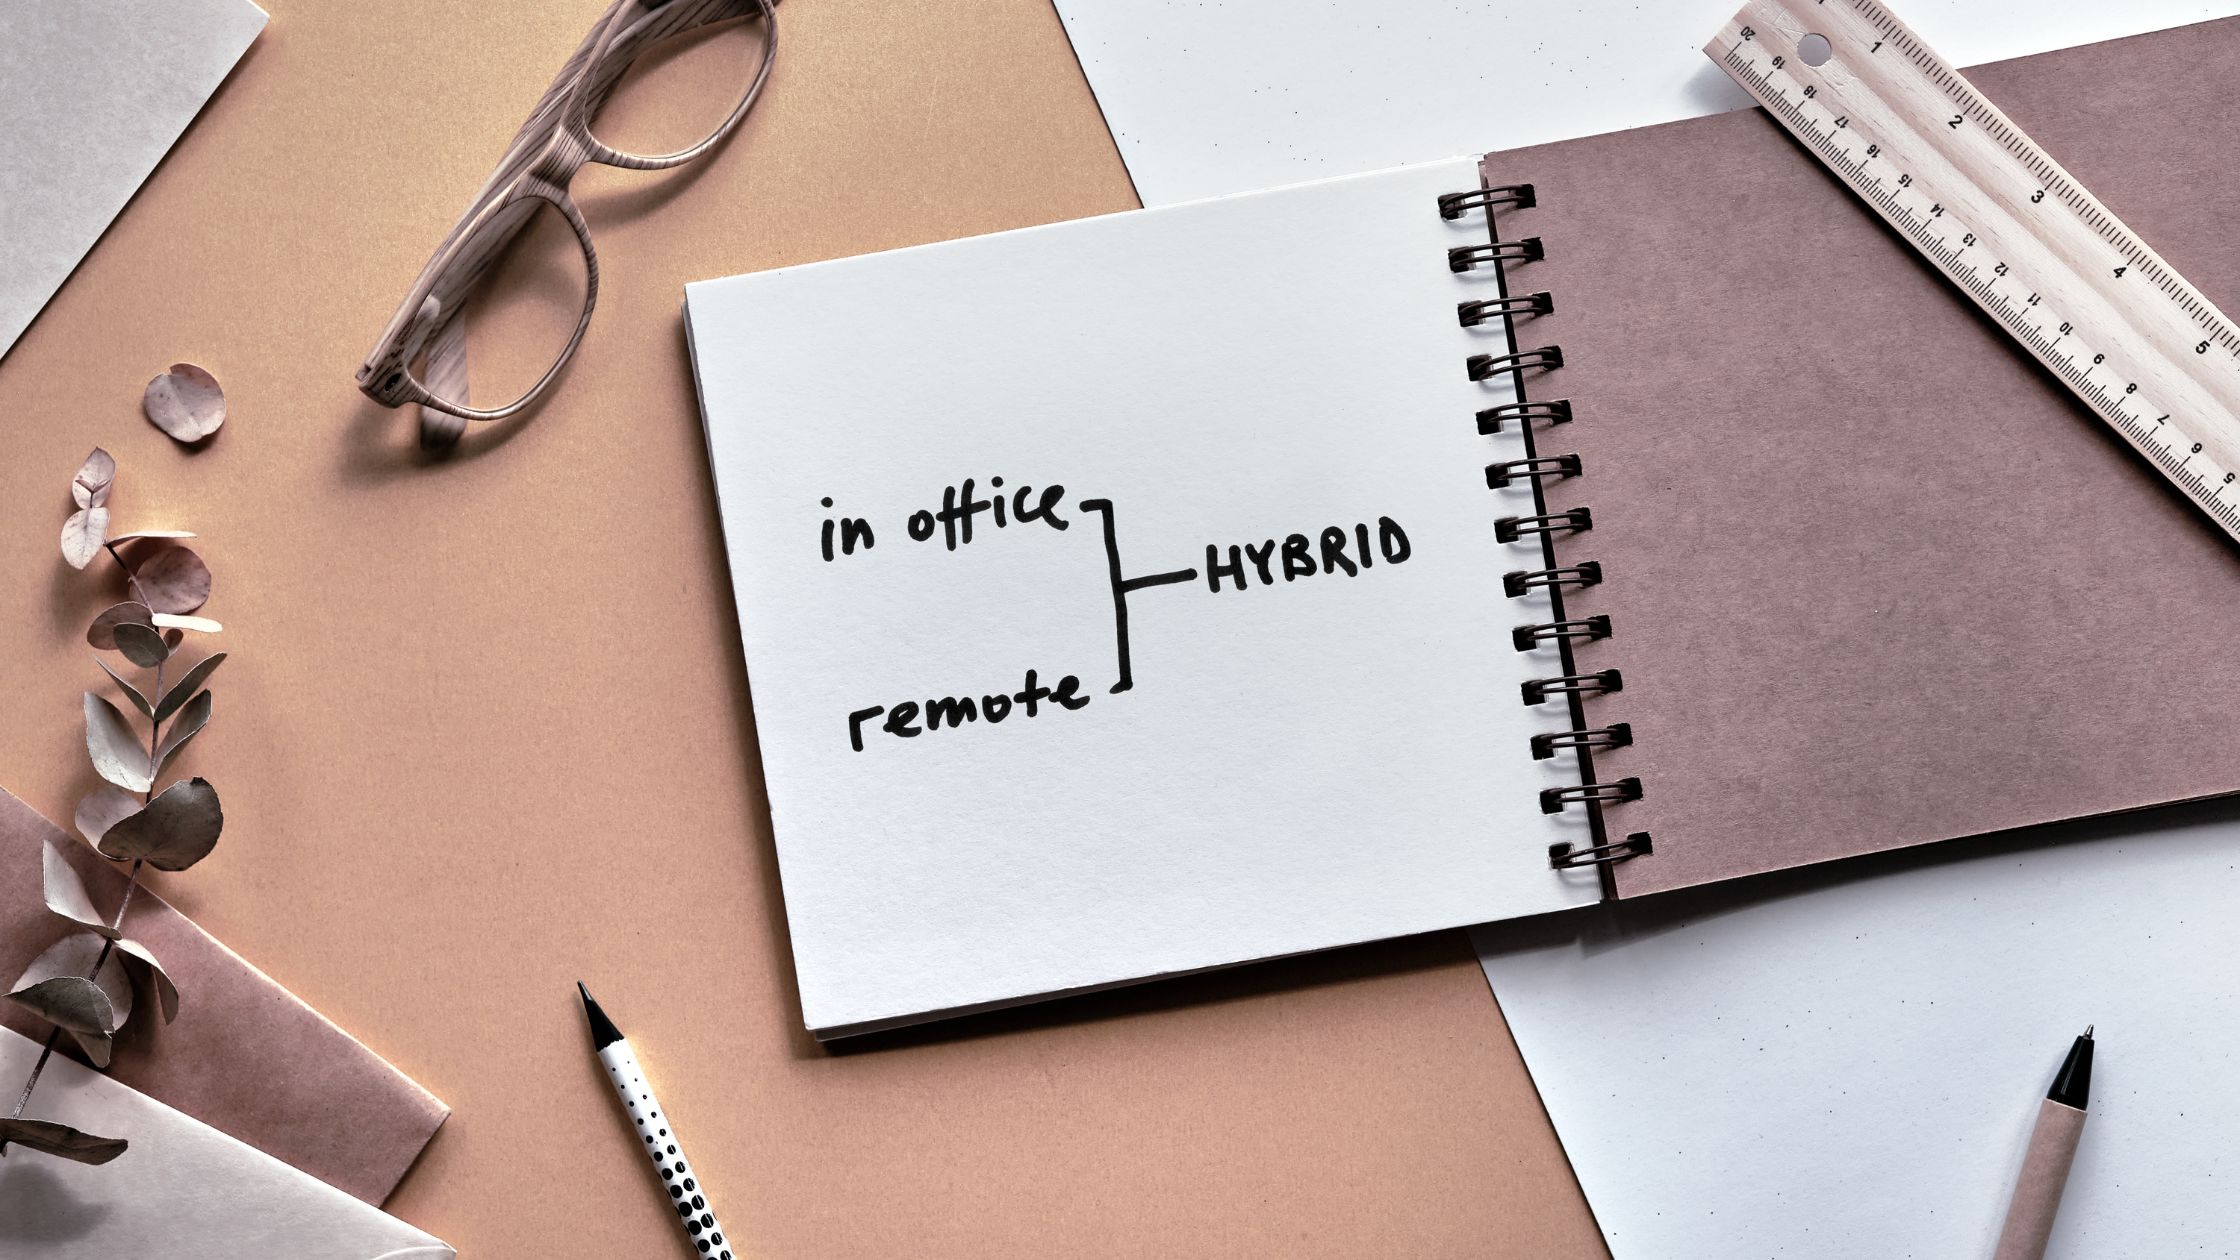 in office
HYBRID
remote
1
2
3
4
5
20
19
18
17
16
15
14
13
12
11
10
9
8
7
6
5